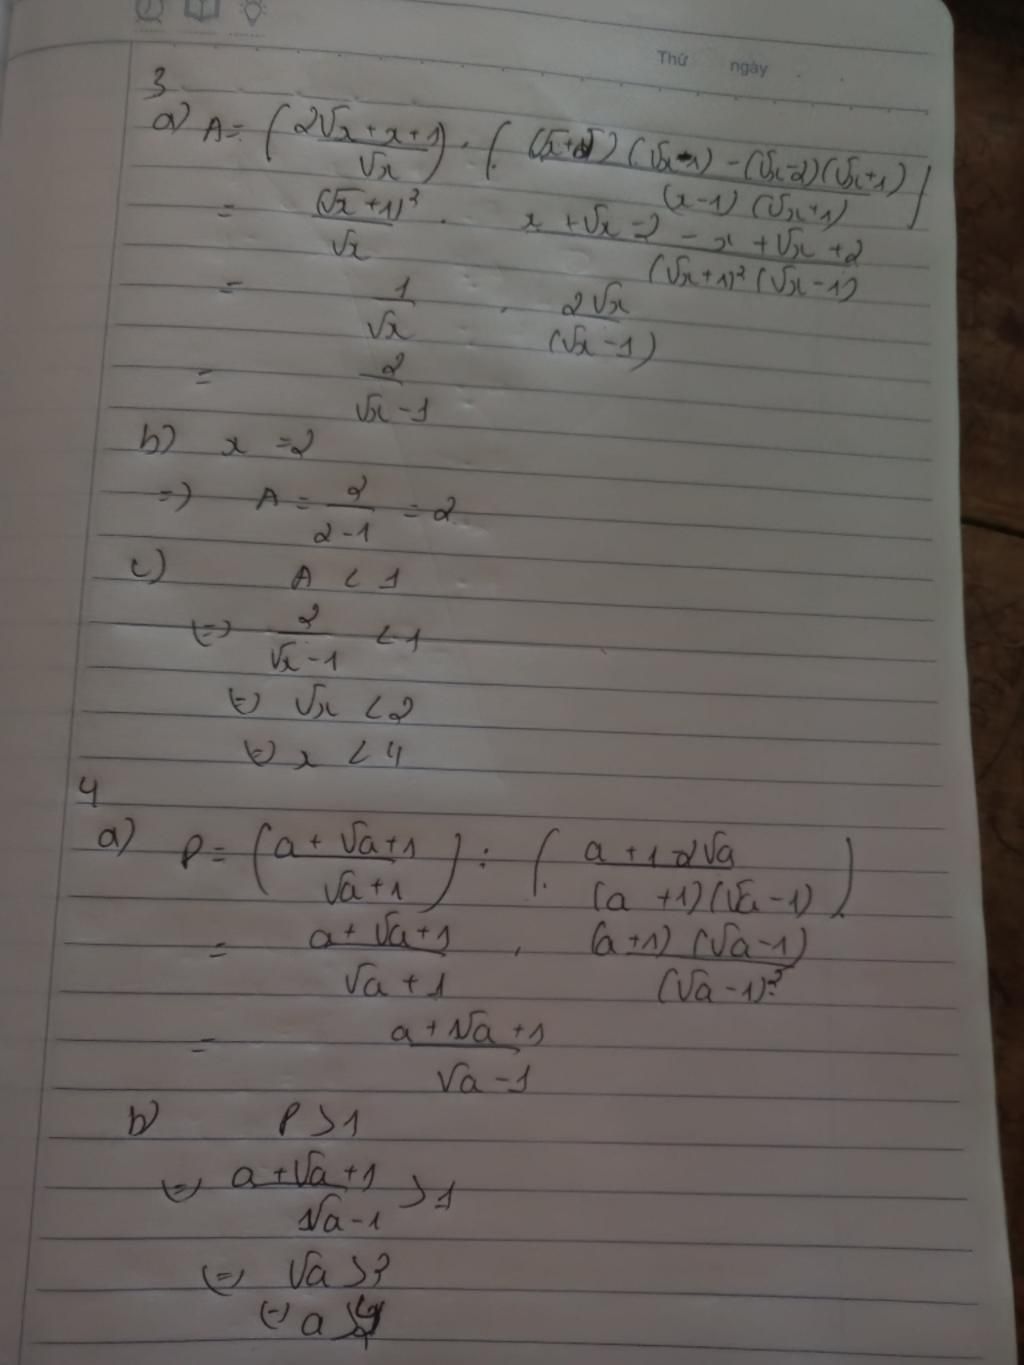 Thứ ngày
3
a) A = (2√x + x + 1 / √x) . ((√x+2)(√x-1) - (√x-2)(√x+1) / (x-1)(√x+1))
= (√x+1)² / √x . x + √x - 2 - x + √x + 2 / (√x+1)²(√x-1)
= 1 / √x . 2√x / (√x-1)
= 2 / √x - 1
b) x = 2
=) A = 2 / 2-1 = 2
c) A < 1
(=) 2 / √x - 1 < 1
(=) √x < 2
(=) x < 4
4
a) P = (a + √a + 1 / √a + 1) : (a + 1 - 2√a / (a + 1)(√a - 1))
= a + √a + 1 / √a + 1 . (a+1)(√a - 1) / (√a - 1)²
= a + √a + 1 / √a - 1
b) P > 1
(=) a + √a + 1 / √a - 1 > 1
(=) √a >
(=) a >